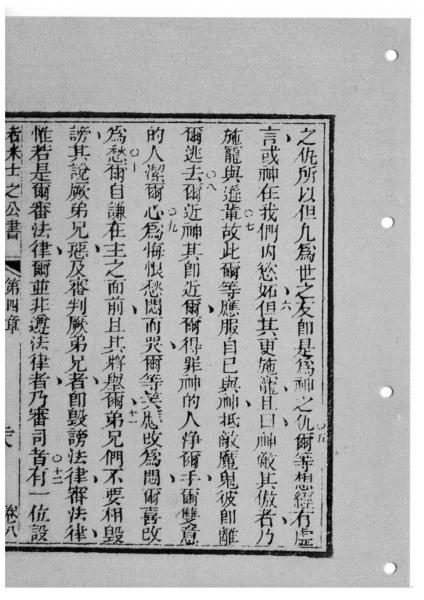 之仇所以但凡為世之友卽是為神之仇爾等想經有虛
五
言或神在我們內慾妬但其更施寵且曰神敵其倣者乃
六
施寵與遜輩故此爾等應服自己與神抵敵魔鬼彼卽離
七
爾逃去爾近神其卽近爾爾得罪神的人淨爾手爾雙意
八
的人潔爾心為悔恨愁悶而哭爾等笑應改為悶爾喜改
九
為愁爾自謙在主之面前且其將舉爾弟兄們不要相毀
十 十一
謗其說厥弟兄惡及審判厥弟兄者卽毀謗法律審法律
惟若是爾審法律爾並非遵法律者乃審司者有一位設
十二
者米士之公書 第四章 卷八